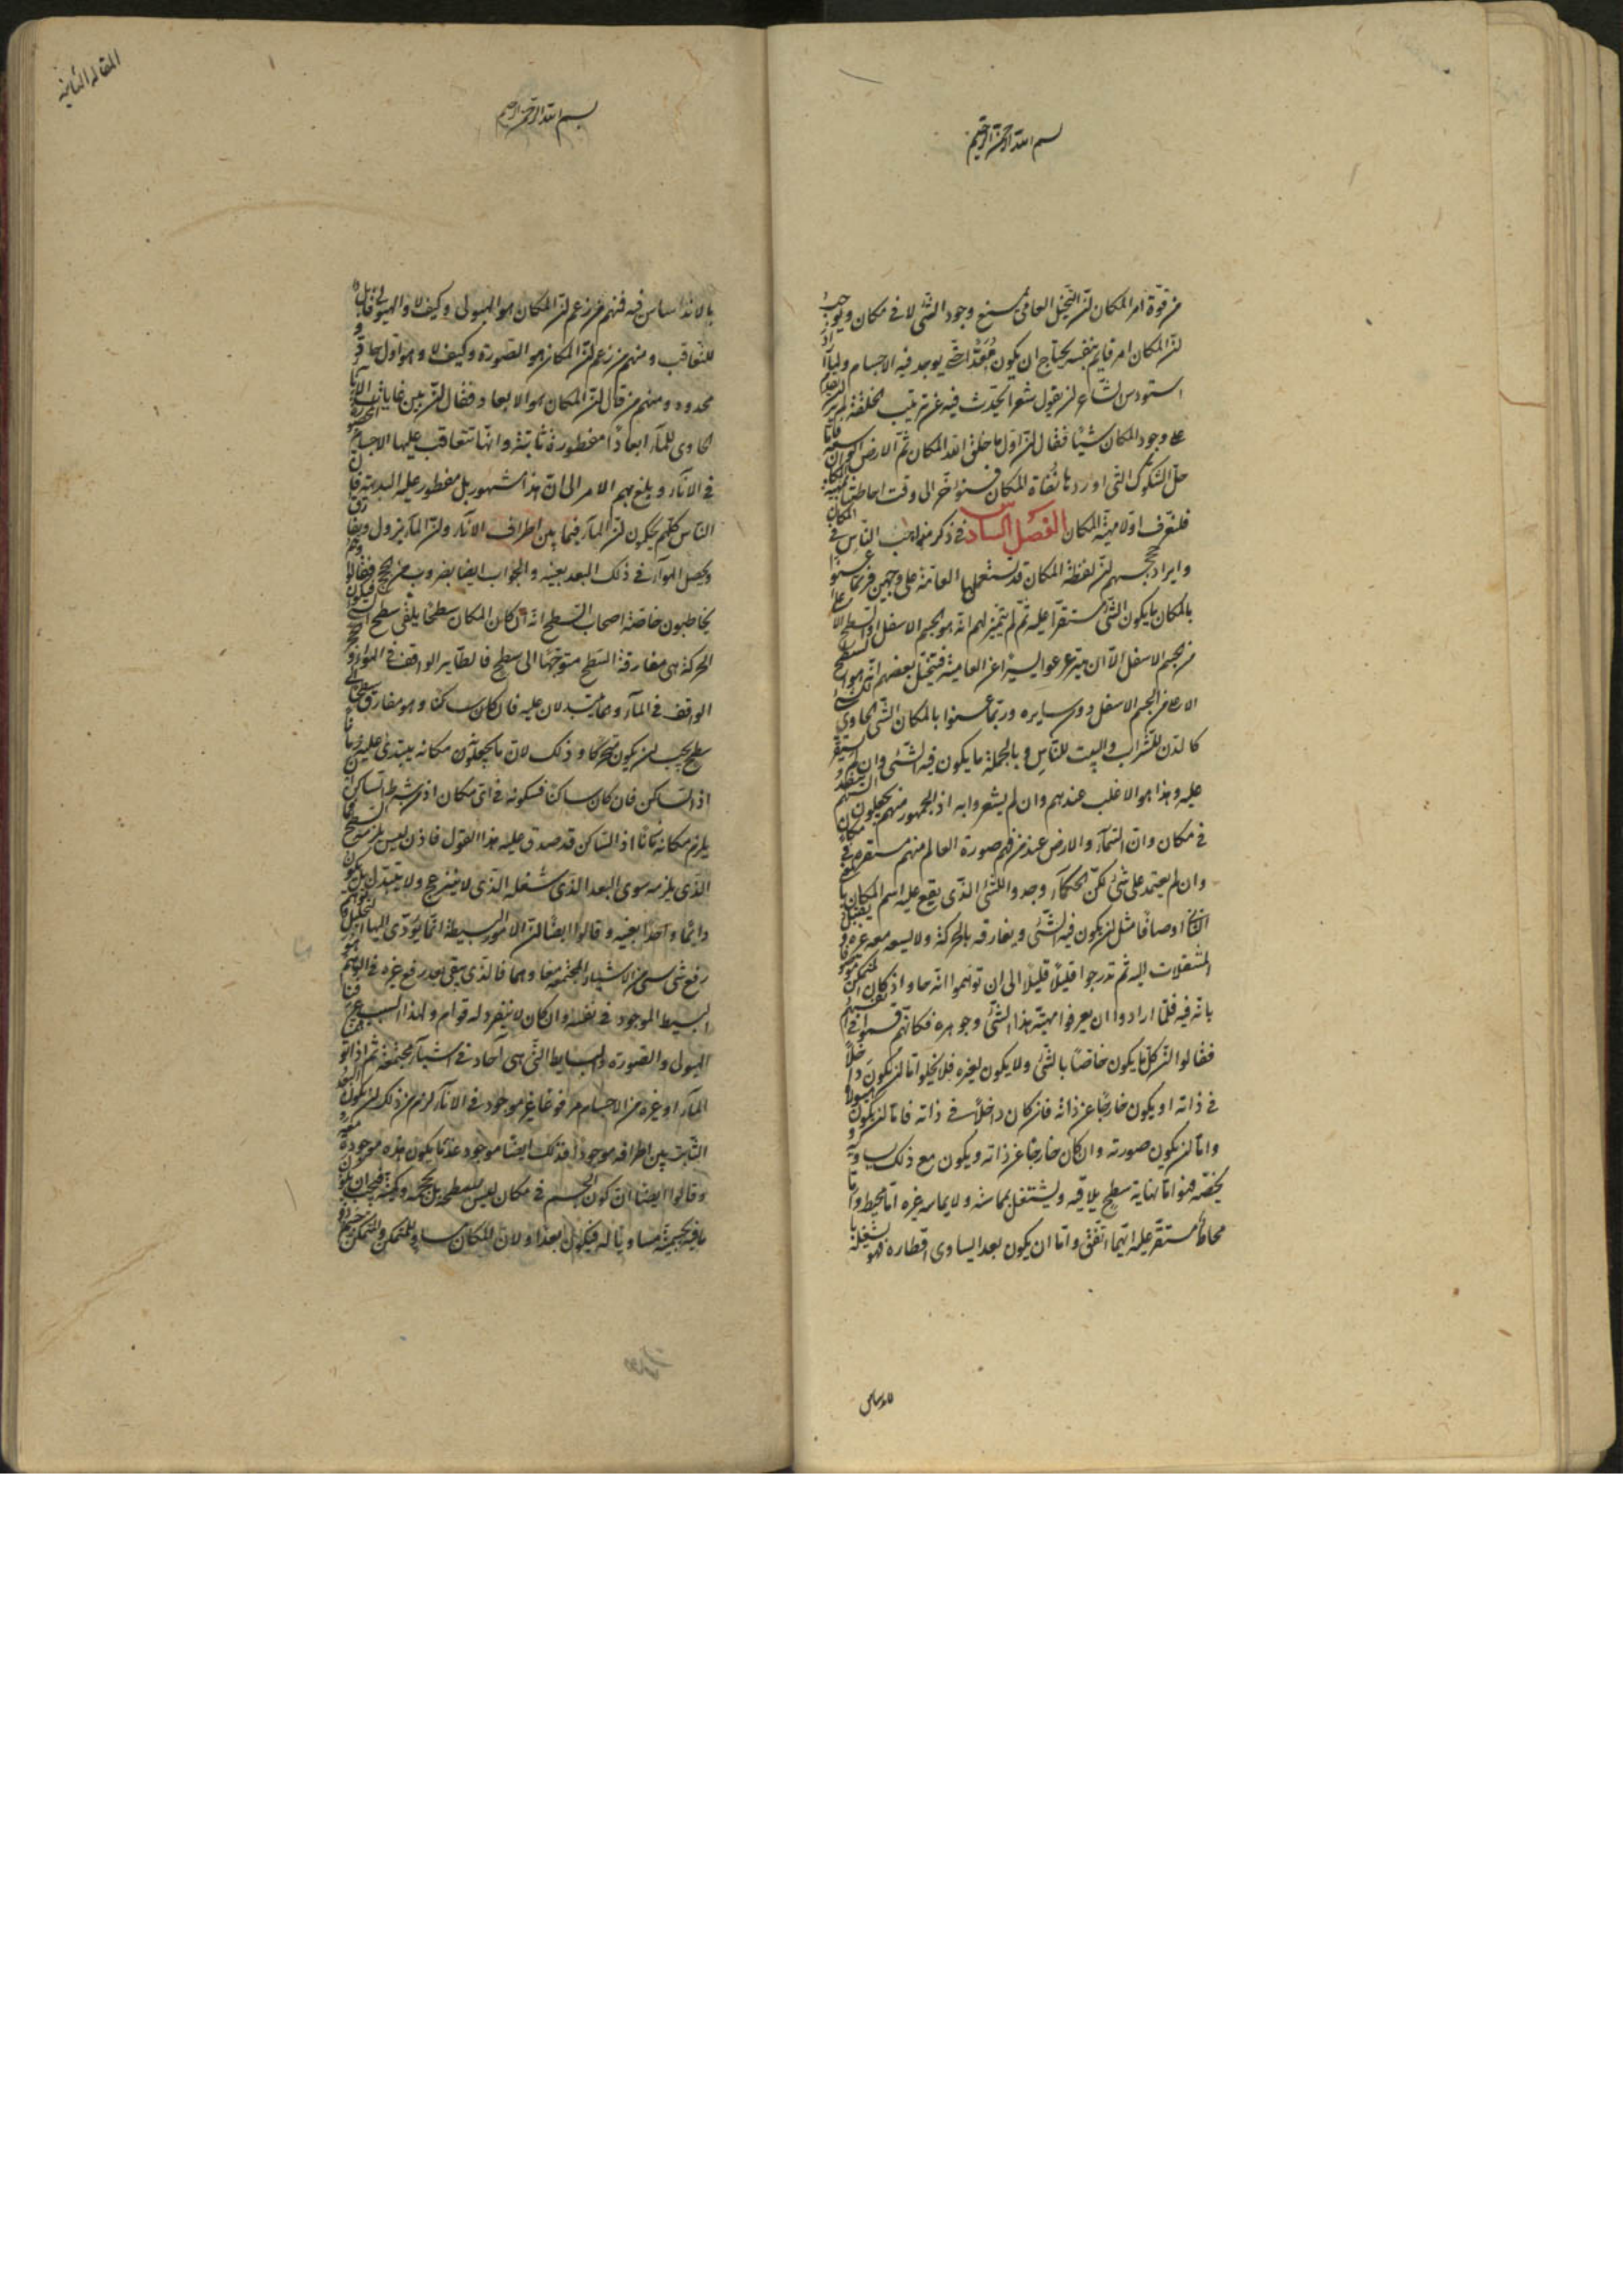 بسم الله الرحمن الرحيم
من قوّة امر المكان انّ التخيّل العامى يمنع وجود الشّئ لا فى مكان ويوجب
انّ المكان امر قايم بنفسه يحتاج ان يكون مُعَدًّا حتّى يوجد فيه الاجسام ولمّا اراد
اسيودس الشاعر ان يقول شعرا يحدّث فيه عن ترتيب الخلقة لم ير ان يقدم
على وجود المكان شيئًا فقال انّ اوّل ما خلق الله المكان ثمّ الارض الواسعة فامّا
حلّ الشكوك التى اوردها نُفاة المكان فسنؤخّر الى وقت احاطتنا بمهيّة المكان
فلنعرف اوّلا مهيّة المكان الفصل السادس فى ذكر مذاهب النّاس فى المكان
وايراد حججهم انّ لفظة المكان قد تستعملها العامّة على وجهين فربّما عنوا
بالمكان ما يكون الشّئ مستقرّا عليه ثمّ لم يتميّز لهم انّه هو الجسم الاسفل او السطح الاعلى
من الجسم الاسفل الّا ان يتزعزعوا يسيرًا عن العامية فيتخيّل بعضهم انّه هو السطح
الاعلى من الجسم الاسفل دون سايره وربّما عنوا بالمكان الشّئ الحاوى للشئ
كالدّن للشّراب والبيت للنّاس وبالجملة ما يكون فيه الشّئ وان لم يستقرّ
عليه وهذا هو الاغلب عندهم وان لم يشعروا به اذ الجمهور منهم يجعلون السّهم ينفذ
فى مكان وانّ السّمآء والارض عند من فهم صورة العالم منهم مستقرّة فى مكان
وان لم يعتمد على شئ لكنّ الحكمآء وجدوا للشّئ الذى يقع عليه اسم المكان بالمعنى
الثانى اوصافًا مثل ان يكون فيه الشّئ ويفارقه بالحركة ولا يسعه معه غيره ويقبل
المنتقلات اليه ثم تدرجوا قليلًا قليلًا الى ان توهّموا انّه حاو اذ كان المتمكّن موصوفا
بانّه فيه فلمّا ارادوا ان يعرفوا مهيّة هذا الشّئ وجوهره فكانّهم قسموا فى انفسهم
فقالوا انّ كلّ ما يكون خاصّا بالشّئ ولا يكون لغيره فلا يخلوا امّا ان يكون داخلًا
فى ذاته او يكون خارجًا عن ذاته فان كان داخلًا فى ذاته فامّا ان يكون هيولاه
وامّا ان يكون صورته وان كان خارجًا عن ذاته ويكون مع ذلك يساويه
ويخصّه فهو امّا نهاية سطح يلاقيه ويشتغل بمماسّه ولا يماسه غيره امّا محيط وامّا
محاط مستقرّ عليه ايّهما اتّفق وامّا ان يكون بعدا يساوى اقطاره فهو يشغله
بالاندساس
المقالة الثانية
بسم الله الرحمن الرحيم
بالاندساس فيه فمنهم من زعم انّ المكان هو الهيولى وكيف لا والهيولى قابل
للتّعاقب ومنهم من زعم انّ المكان هو الصورة وكيف لا وهو اول حاو
محدود ومنهم من قال انّ المكان هو الابعاد فقال انّ بين غايات الاناء
الحاوى للمآء ابعادًا مفطورة ثابتة وانّها تتعاقب عليها الاجسام المحصورة
فى الانآء وبلغ بهم الامر الى انّ هذا مشهور بل مفطور عليه البديهة فان
النّاس كلّهم يحكمون انّ المآء فيما بين اطراف الانآء وانّ المآء يزول ويفارق
ويحصل الهوآء فى ذلك البعد بعينه والجواب ايضا بضروب من الحجج فقالوا وهم
يخاطبون خاصّة اصحاب السّطح انّه ان كان المكان سطحًا يلقى سطح الشئ فيكون
الحركة هى مفارقة السّطح متوجّهًا الى سطح فالطّاير الواقف فى الهوآء والحجر
الواقف فى المآء وهما يتبدلان عليه فان كان ساكنًا وهو مفارق سطحًا الى
سطح يجب ان يكون متحرّكًا وذلك لانّ ما يجعلون مكانه يتبدل عليه
اذ السّاكن فان كان ساكنًا فسكونه فى اىّ مكان اذ من شرط السّاكن ان
يلزم مكانه زمانًا اذ السّاكن قد صدق عليه هذا القول فاذن ليس يلزم السطح فما
الذى يلزمه سوى البعد الذى شغله الذى لا ينزعج ولا يتبدّل بل يكون
دائمًا واحدًا بعينه وقالوا ايضًا انّ الامور البسيطة انّما يؤدّى اليها التحليل وتوهم
رفع شئ شئ من الاشياء المجتمعة معا وهما فالّذى يبقى بعد رفع غيره فى الوهم هو
البسيط الموجود فى نفسه وان كان لا ينفرد له قوام ولهذا السبب عرفنا
الهيولى والصّورة والبسايط التّى هى آحاد فى اشيآء مجتمعة ثم اذا توهّمنا
المآء او غيره من الاجسام مرفوعًا غير موجود فى الانآء لزم من ذلك ان يكون البعد
الثّابت بين اطرافه موجودًا وذلك ايضًا موجود عندما يكون هذه موجودة معه
وقالوا ايضًا ان كون الجسم فى مكان ليس بسطحه بل بحجمه وكمّيته فيجب ان يكون
ما فيه بجسميّته مساويًا له فيكون بعدًا ولانّ المكان مساو للمتمكّن والمتمكّن جسم ذو